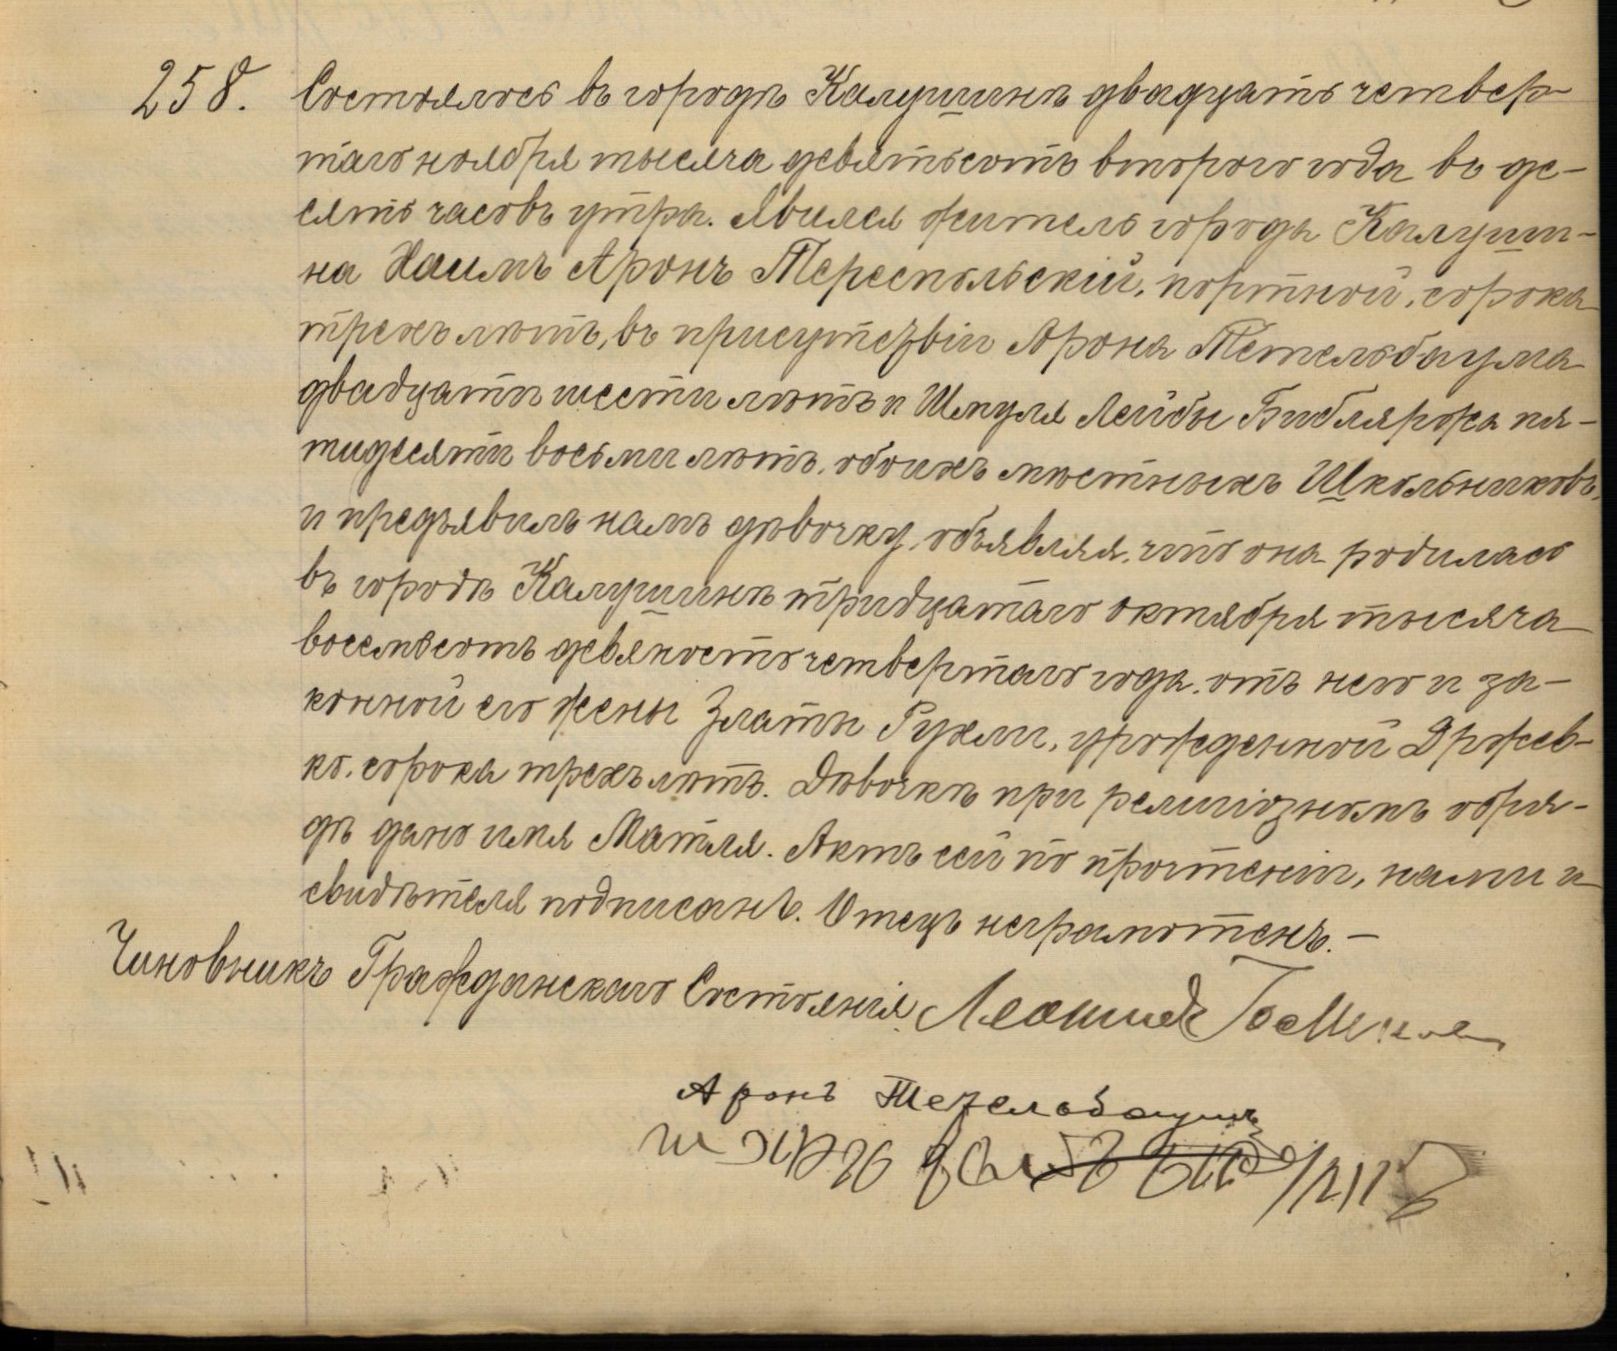 258. Состоялось въ городѣ Калушинѣ двадцать четвер-
таго ноября тысяча девятьсотъ второго года въ де-
сять часовъ утра. Явился житель города Калуши-
на Хаимъ Аронъ Тереспольскій, портной, сорока
трехъ лѣтъ, въ присутствіи Арона Тетельбаума
двадцати шести лѣтъ и Шмуля Лейбы Библяржа пя-
тидесяти восьми лѣтъ, обоихъ мѣстныхъ Школьниковъ,
и предъявилъ намъ дѣвочку, объявляя, что она родилась
въ городѣ Калушинѣ тридцатаго октября тысяча
восемьсотъ девяносто четвертаго года, отъ него и за-
конной его жены Златы Рухли, урожденной Држев-
ко, сорока трехъ лѣтъ. Дѣвочкѣ при религіозномъ обря-
дѣ дано имя Матля. Актъ сей по прочтеніи, нами и
свидѣтеля подписанъ. Отецъ неграмотенъ.—
Чиновникъ Гражданскаго Состоянія
Аронъ Тетельбаумъ